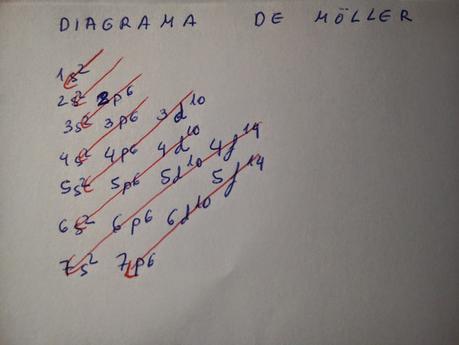 DIAGRAMA DE MÖLLER
1s²
2s² 2p⁶
3s² 3p⁶ 3d¹⁰
4s² 4p⁶ 4d¹⁰ 4f¹⁴
5s² 5p⁶ 5d¹⁰ 5f¹⁴
6s² 6p⁶ 6d¹⁰
7s² 7p⁶